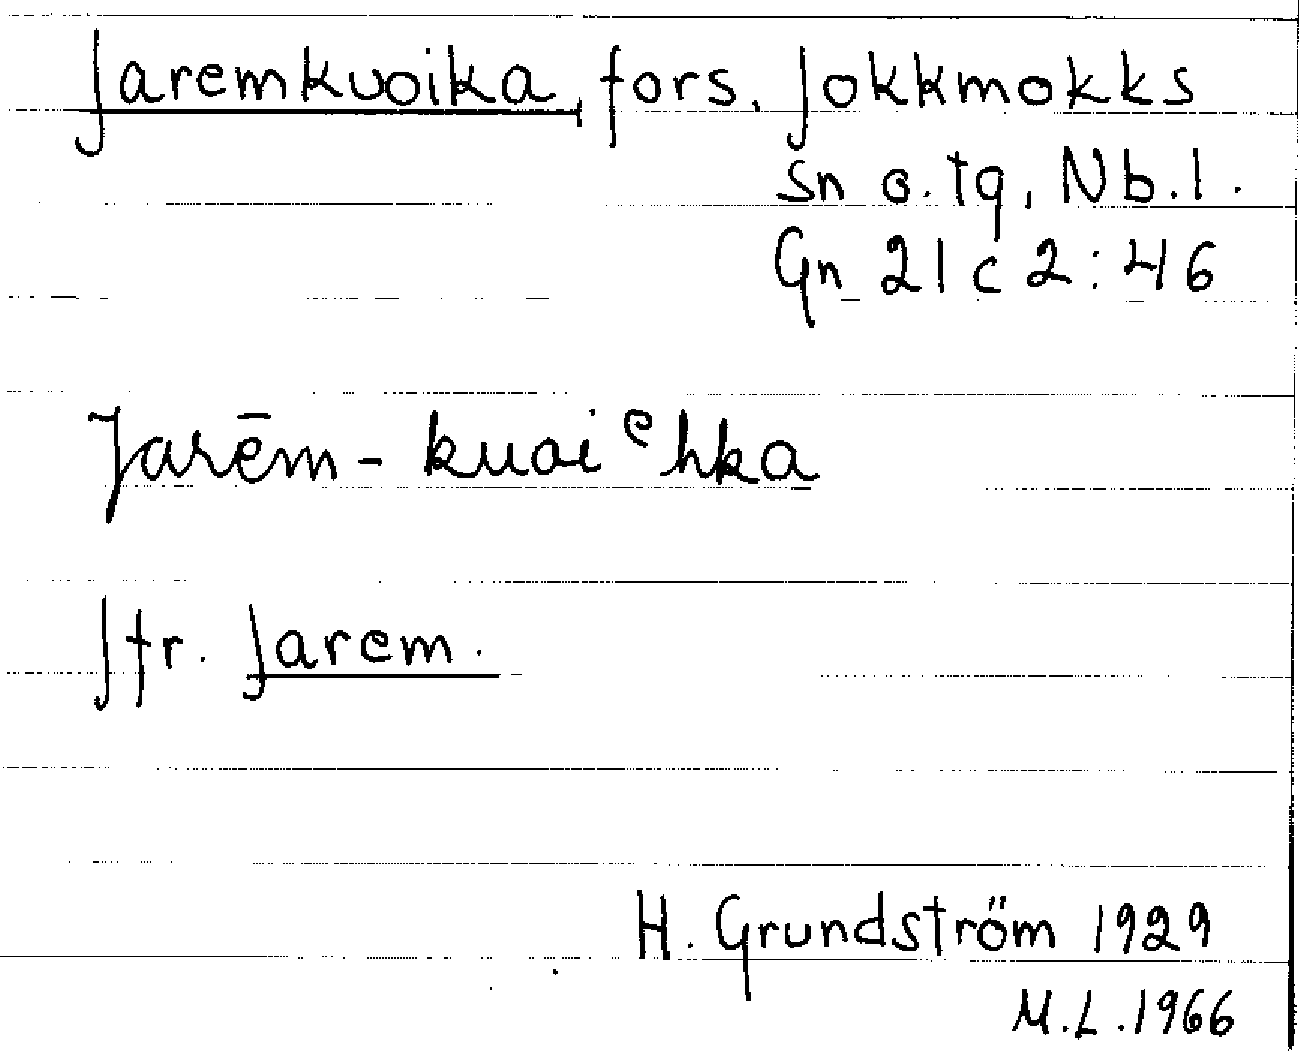 Jaremkuoika, fors. Jokkmokks
sn o. tg, Nb.l.
Gn 21 c 2:46
Jarēm-kuaiᵉhka
Jfr. Jarem.
H. Grundström 1929
M.L. 1966